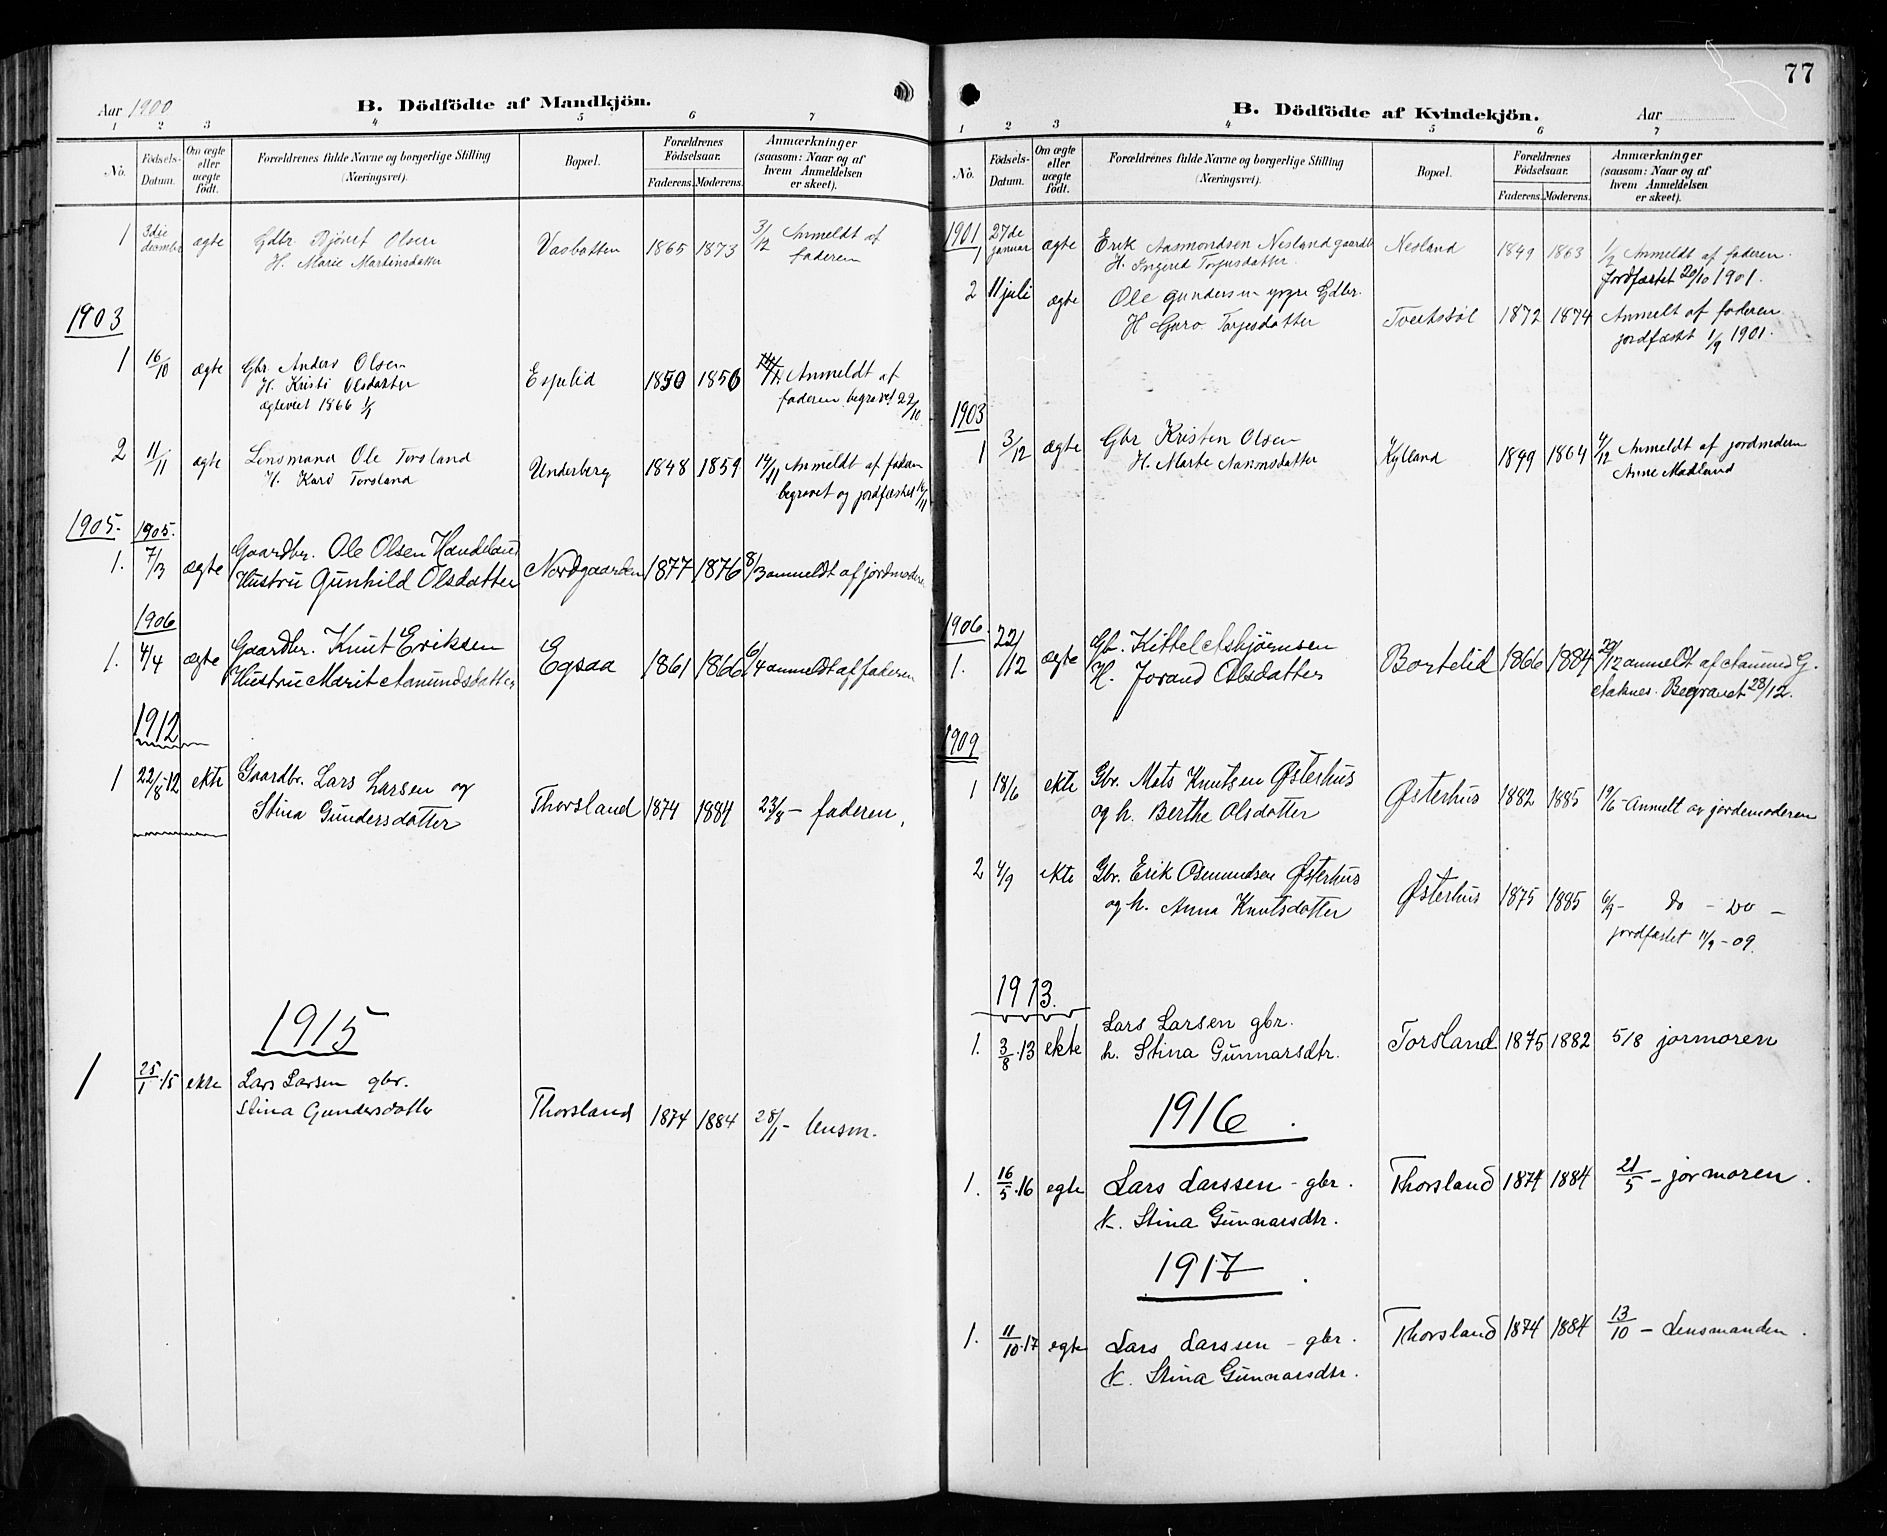 Aar 1900
B. Dödfödte af Mandkjön.
1 2 3 4 5 6 7
No.
Födsels-Datum.
Om ægte eller uægte födt.
Forældrenes fulde Navne og borgerlige Stilling
(Næringsvei).
Bopæl.
Forældrenes Födselsaar.
Faderens. Moderens.
Anmærkninger
(saasom: Naar og af
hvem Anmeldelsen
er skeet).
1 3die december ægte Gdbr. Olsen Vasbotten 1865 1873 3/12 Anmeldt af
H. Marie Martinsdatter faderen
1903
1 16/10 ægte Gbr. Anders Olsen Espelid 1850 1856 Anmeldt af
H. Kristi Olsdatter faderen begravet 22/10
ægteviet 1866
2 11/11 ægte Lensmand Ole Torsland Underberg 1848 1859 14/11 Anmeldt af fadern
H. Karo Torsland begravet og jordfæstet 16/11
1905. 1905.
1. 7/3 ægte Gaardbr. Ole Olsen Handeland Nordgaarden 1877 1876 8/3 anmeldt af jordmoderen
Hustru Gunhild Olsdatter
1906
1. 4/4 ægte Gaardbr. Knut Eriksen Egsaa 1861 1866 6/4 anmeldt af faderen
Hustru Marit Aanundsdatter
1912
1 22/8-12 ekte Gaardbr. Lars Larsen og Thorsland 1874 1884 23/8 - faderen,
Stina Gundersdatter
1915
1 25/1.15 ekte Lars Larsen gbr. Thorsland 1874 1884 28/1 - lensm.
Stina Gundersdatter
77
B. Dödfödte af Kvindekjön.
Aar
1 2 3 4 5 6 7
No.
Födsels-Datum.
Om ægte eller uægte födt.
Forældrenes fulde Navne og borgerlige Stilling
(Næringsvei).
Bopæl.
Forældrenes Födselsaar.
Faderens. Moderens.
Anmærkninger
(saasom: Naar og af
hvem Anmeldelsen
er skeet).
1901
1 27de januar ægte Erik Aasmondsen Nesland gaardb Nesland 1849 1863 1/2 Anmeldt af faderen.
H. Ingerid Torjusdatter Jordfæstet 20/10 1901.
2 11 juli ægte Ole Gundersen yngre Gdbr. Tveitstöl 1872 1874 Anmelt af faderen
H Guro Torjesdatter jordfæstet 1/9 1901.
1903
1 3/12 ægte Gbr Kristen Olsen Kylland 1899 1864 4/12 Anmeldt af jordmodern
H. Marte Aanonsdatter Anne Madland
1906.
1. 22/12 ægte Gb. Kittel Asbjørnsen Bortelid 1866 1884 29/12 anmeldt af Aanund G.
H. Jorand Olsdatter Aaknes. Begravet 28/12.
1909
1 18/6 ekte Gbr. Mats Knutsen Østerhus Østerhus 1882 1885 19/6 - Anmelt av jordemoderen
og h. Berthe Olsdatter
2 4/9 ekte Gbr. Erik Osmundsen Østerhus Østerhus 1875 1885 6/9 - do - Do -
og h. Anna Knutsdatter jordfæstet 11/9 - 09.
1913.
1. 3/8.13 ekte Lars Larsen gbr. Torsland 1875 1882 5/8 jormoren
h. Stina Gunnarsdtr.
1916.
1. 16/5.16 egte Lars Larssen - gbr. Thorsland 1874 1884 21/5 - jormoren.
k. Stina Gunnarsdtr.
1917.
1. 11/10.17 egte Lars Larssen - gbr. Thorsland 1874 1884 13/10 - Lensmanden.
k. Stina Gunnarsdtr.